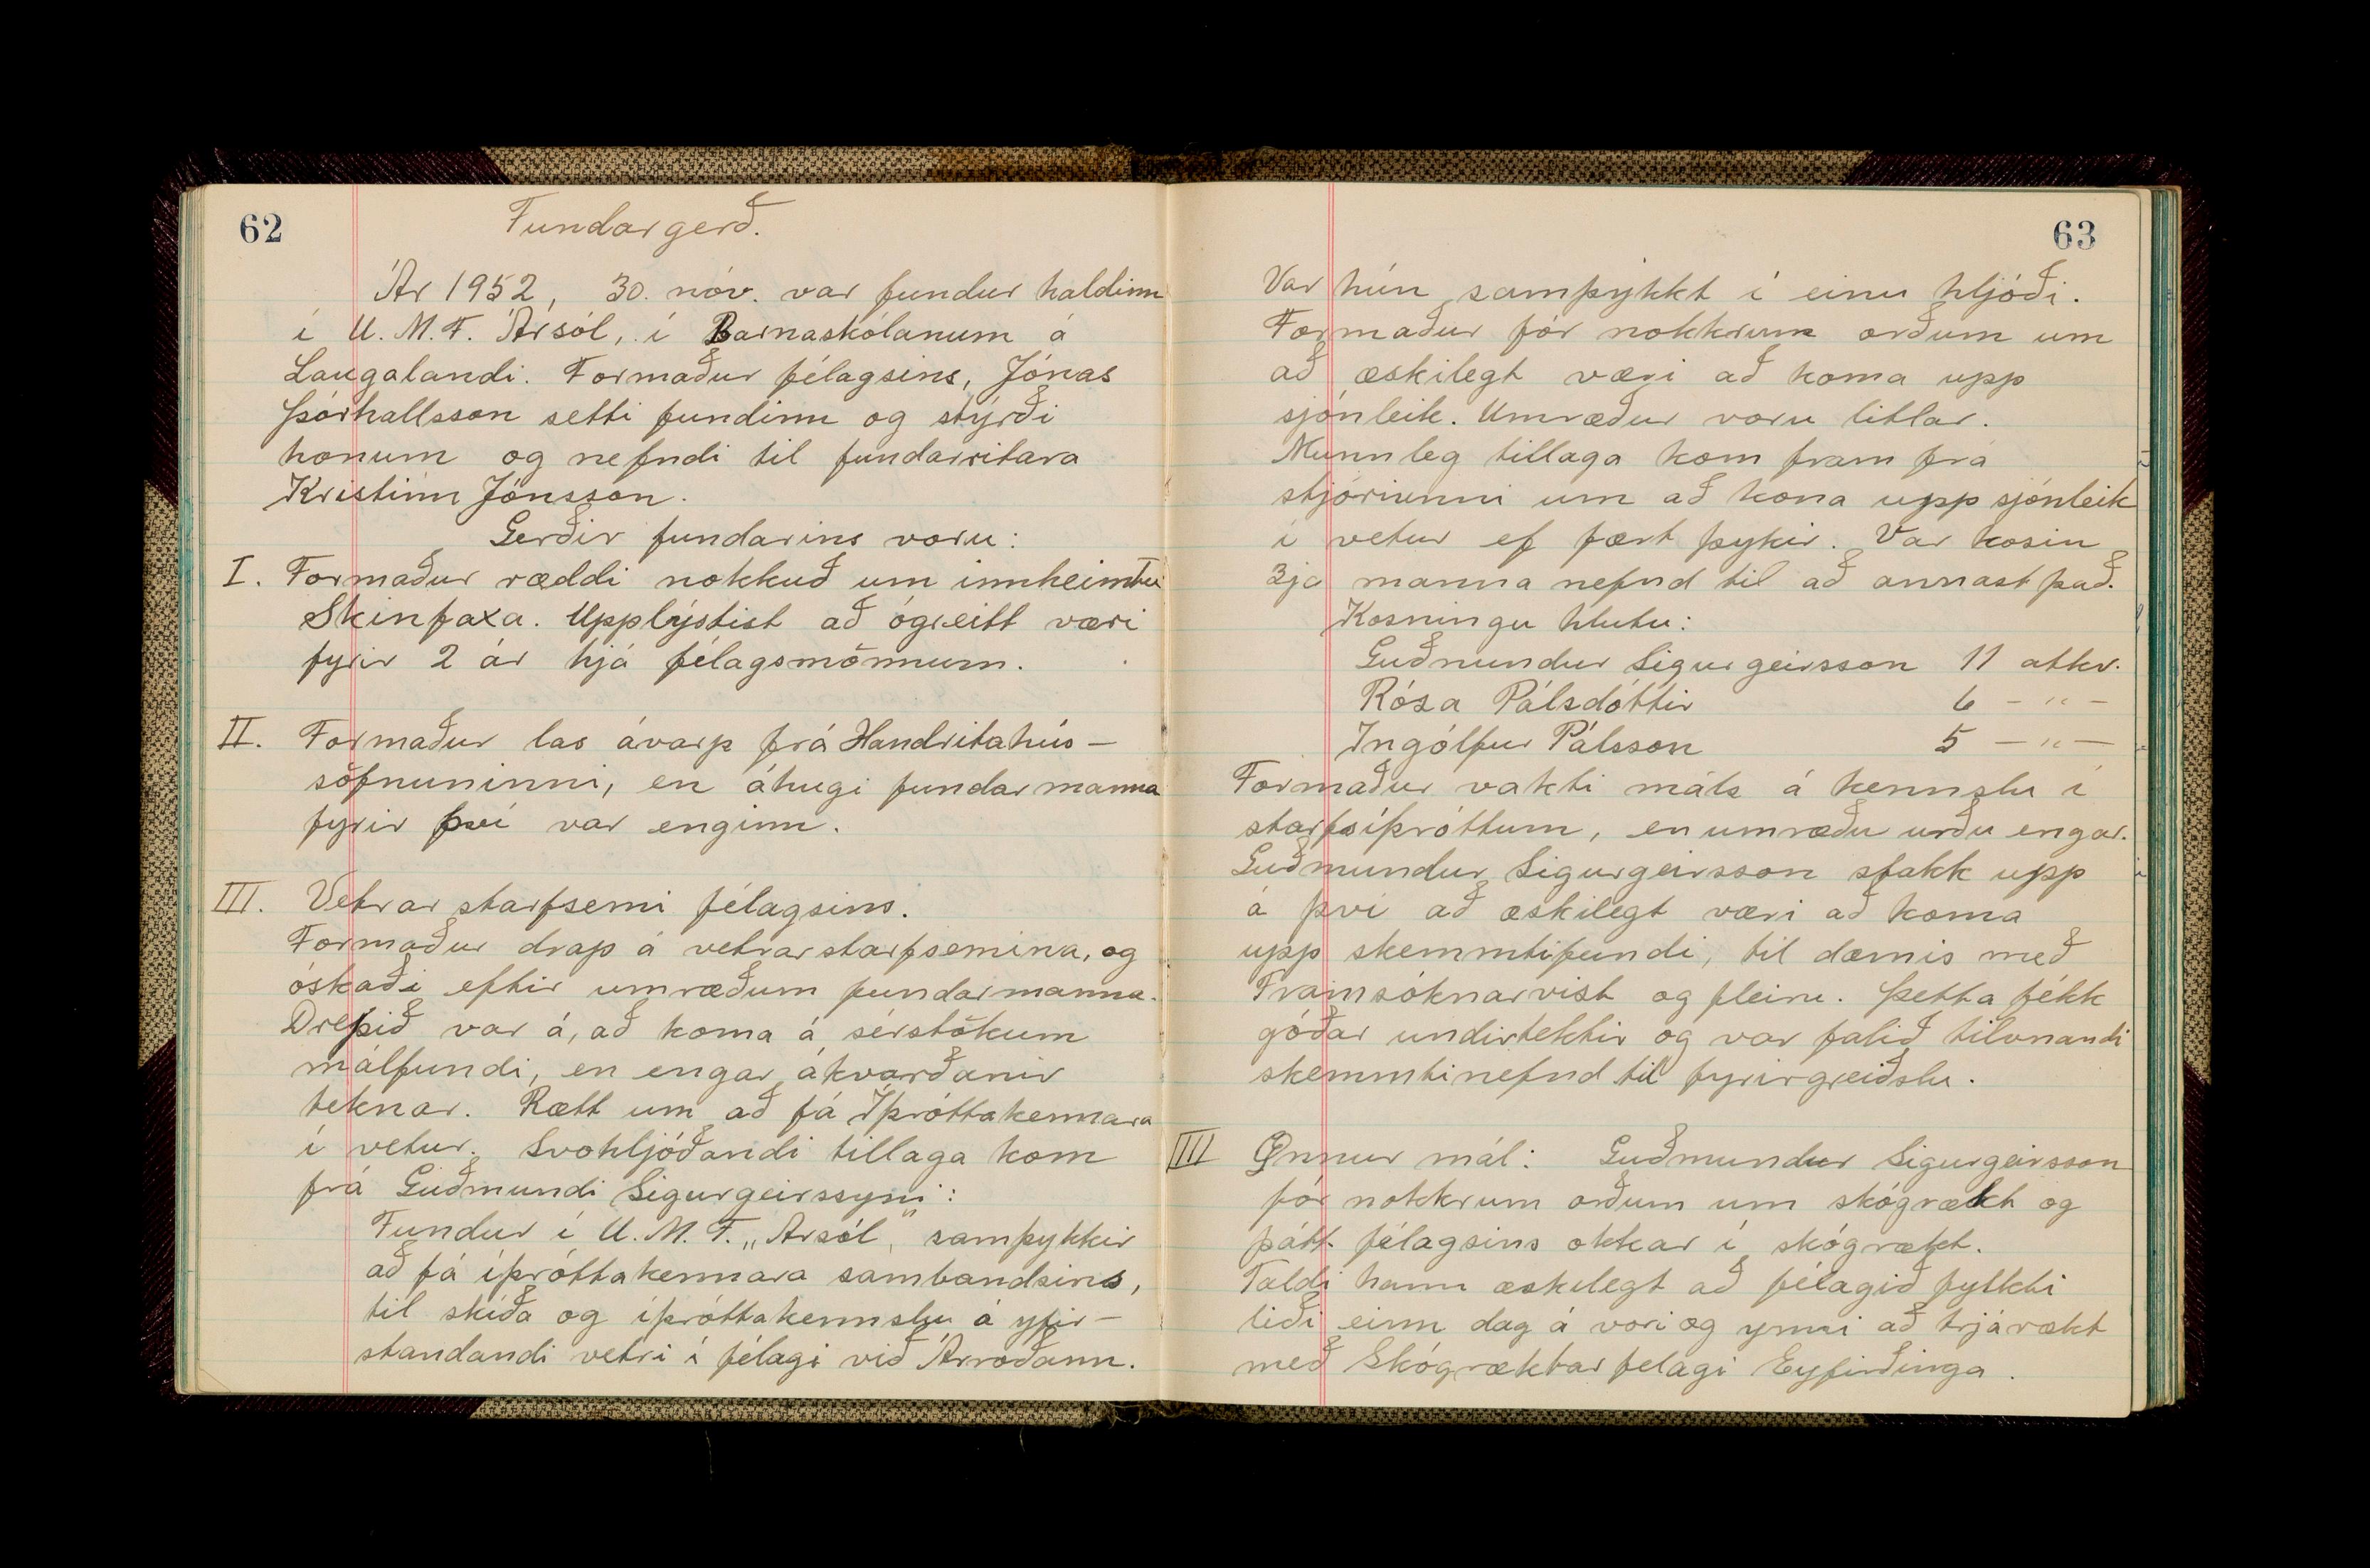 62
Fundargerð.
Ár 1952, 30. nóv. var fundur haldinn
í U. M. F. Ársól, í Barnaskólanum á
Laugalandi. Formaður félagsins, Jónas
Þórhallsson setti fundinn og stýrði
honum og nefndi til fundarritara
Kristinn Jónsson.
Gerðir fundarins voru:
I. Formaður ræddi nokkuð um innheimtu
Skinfaxa. Upplýstist að ógreitt væri
fyrir 2 ár hjá félagsmönnum.
II. Formaður las ávarp frá Handritahús-
söfnuninni, en áhugi fundarmanna
fyrir því var enginn.
III. Vetrarstarfsemi félagsins.
Formaður drap á vetrarstarfsemina, og
óskaði eftir umræðum fundarmanna.
Drepið var á, að koma á sérstökum
málfundi, en engar ákvarðanir
teknar. Rætt um að fá Íþróttakennara
í vetur. Svohljóðandi tillaga kom
frá Guðmundi Sigurgeirssyni:
Fundur í U. M. F. „Ársól" samþykkir
að fá íþróttakennara sambandsins,
til skíða og íþróttakennslu á yfir-
standandi vetri í félagi við Árroðann.
63
Var hún samþýkkt í einu hljóði.
Formaður fór nokkrum orðum um
að æskilegt væri að koma upp
sjónleik. Umræður voru litlar.
Munnleg tillaga kom fram frá
stjórinni um að kona upp sjónleik
í vetur ef fært þykir. Var kosin
3ja manna nefnd til að annast það.
Kosningu hlutu:
Guðmundur Sigurgeirsson 11 atkv.
Rósa Pálsdóttir 6 - " -
Ingólfur Pálsson 5 - " -
Formaður vakti máls á kennslu í
starfsíþróttum, en umræðu urðu engar.
Guðmundur Sigurgeirsson stakk upp
á því að æskilegt væri að koma
upp skemmtifundi, til dæmis með
Framsóknarvist og fleiru. Þetta fékk
góðar undirtektir og var falið tilvnandi
skemmtinefnd til fyrirgreiðslu.
III Önnur mál: Guðmundur Sigurgeirsson
fór nokkrum orðum um skógrækt og
þátt félagsins okkar í skógrækt.
Taldi hann æskilegt að félagið fylkti
liði einn dag á vori og ynni að trjárækt
með Skógræktarfelagi Eyfirðinga.